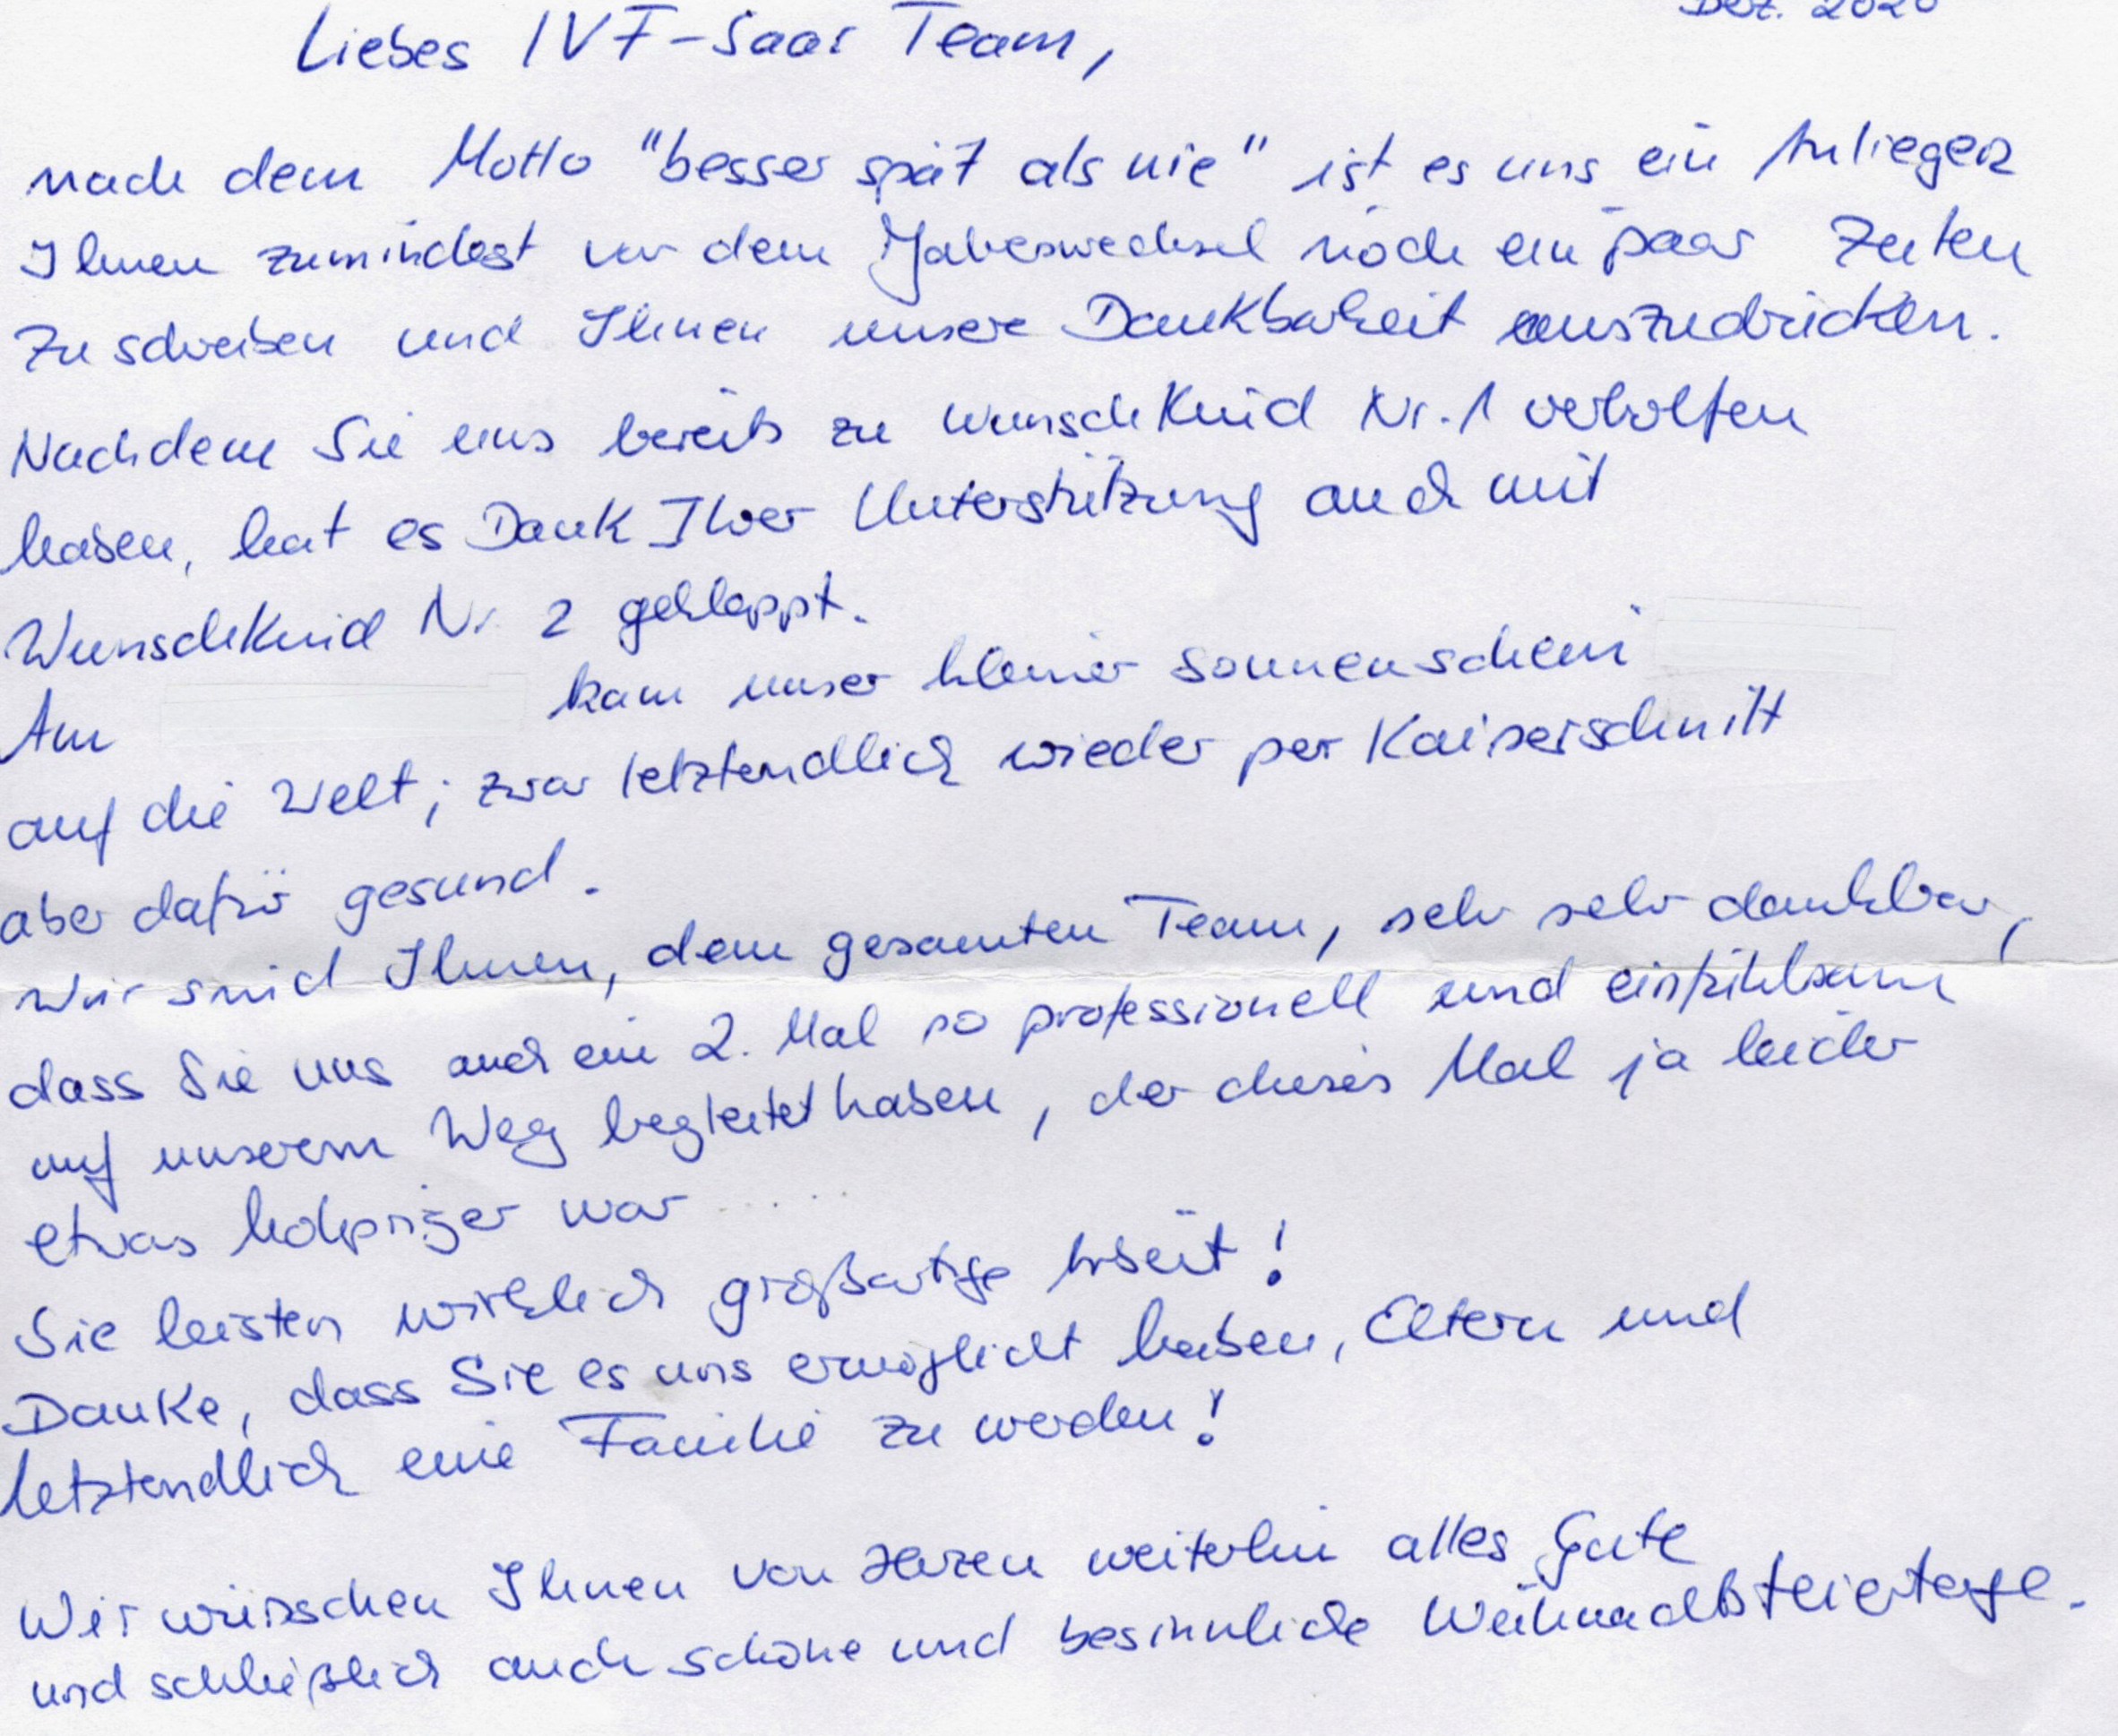 Dez. 2020
Liebes IVF-Saar Team,
nach dem Motto "besser spät als nie" ist es uns ein Anliegen
Ihnen zumindest vor dem Jahreswechsel noch ein paar Zeilen
zu schreiben und Ihnen unsere Dankbarkeit auszudrücken.
Nachdem Sie uns bereits zu Wunschkind Nr. 1 verholfen
haben, hat es Dank Ihrer Unterstützung auch mit
Wunschkind Nr. 2 geklappt.
Am kam unser kleiner Sonnenschein
auf die Welt; zwar letztendlich wieder per Kaiserschnitt
aber dafür gesund.
Wir sind Ihnen, dem gesamten Team, sehr sehr dankbar,
dass Sie uns auch ein 2. Mal so professionell und einfühlsam
auf unserem Weg begleitet haben, der dieses Mal ja leider
etwas holpriger war .....
Sie leisten wirklich großartige Arbeit!
Danke, dass Sie es uns ermöglicht haben, Eltern und
letztendlich eine Familie zu werden!
Wir wünschen Ihnen von Herzen weiterhin alles Gute
und schließlich auch schöne und besinnliche Weihnachtsfeiertage.